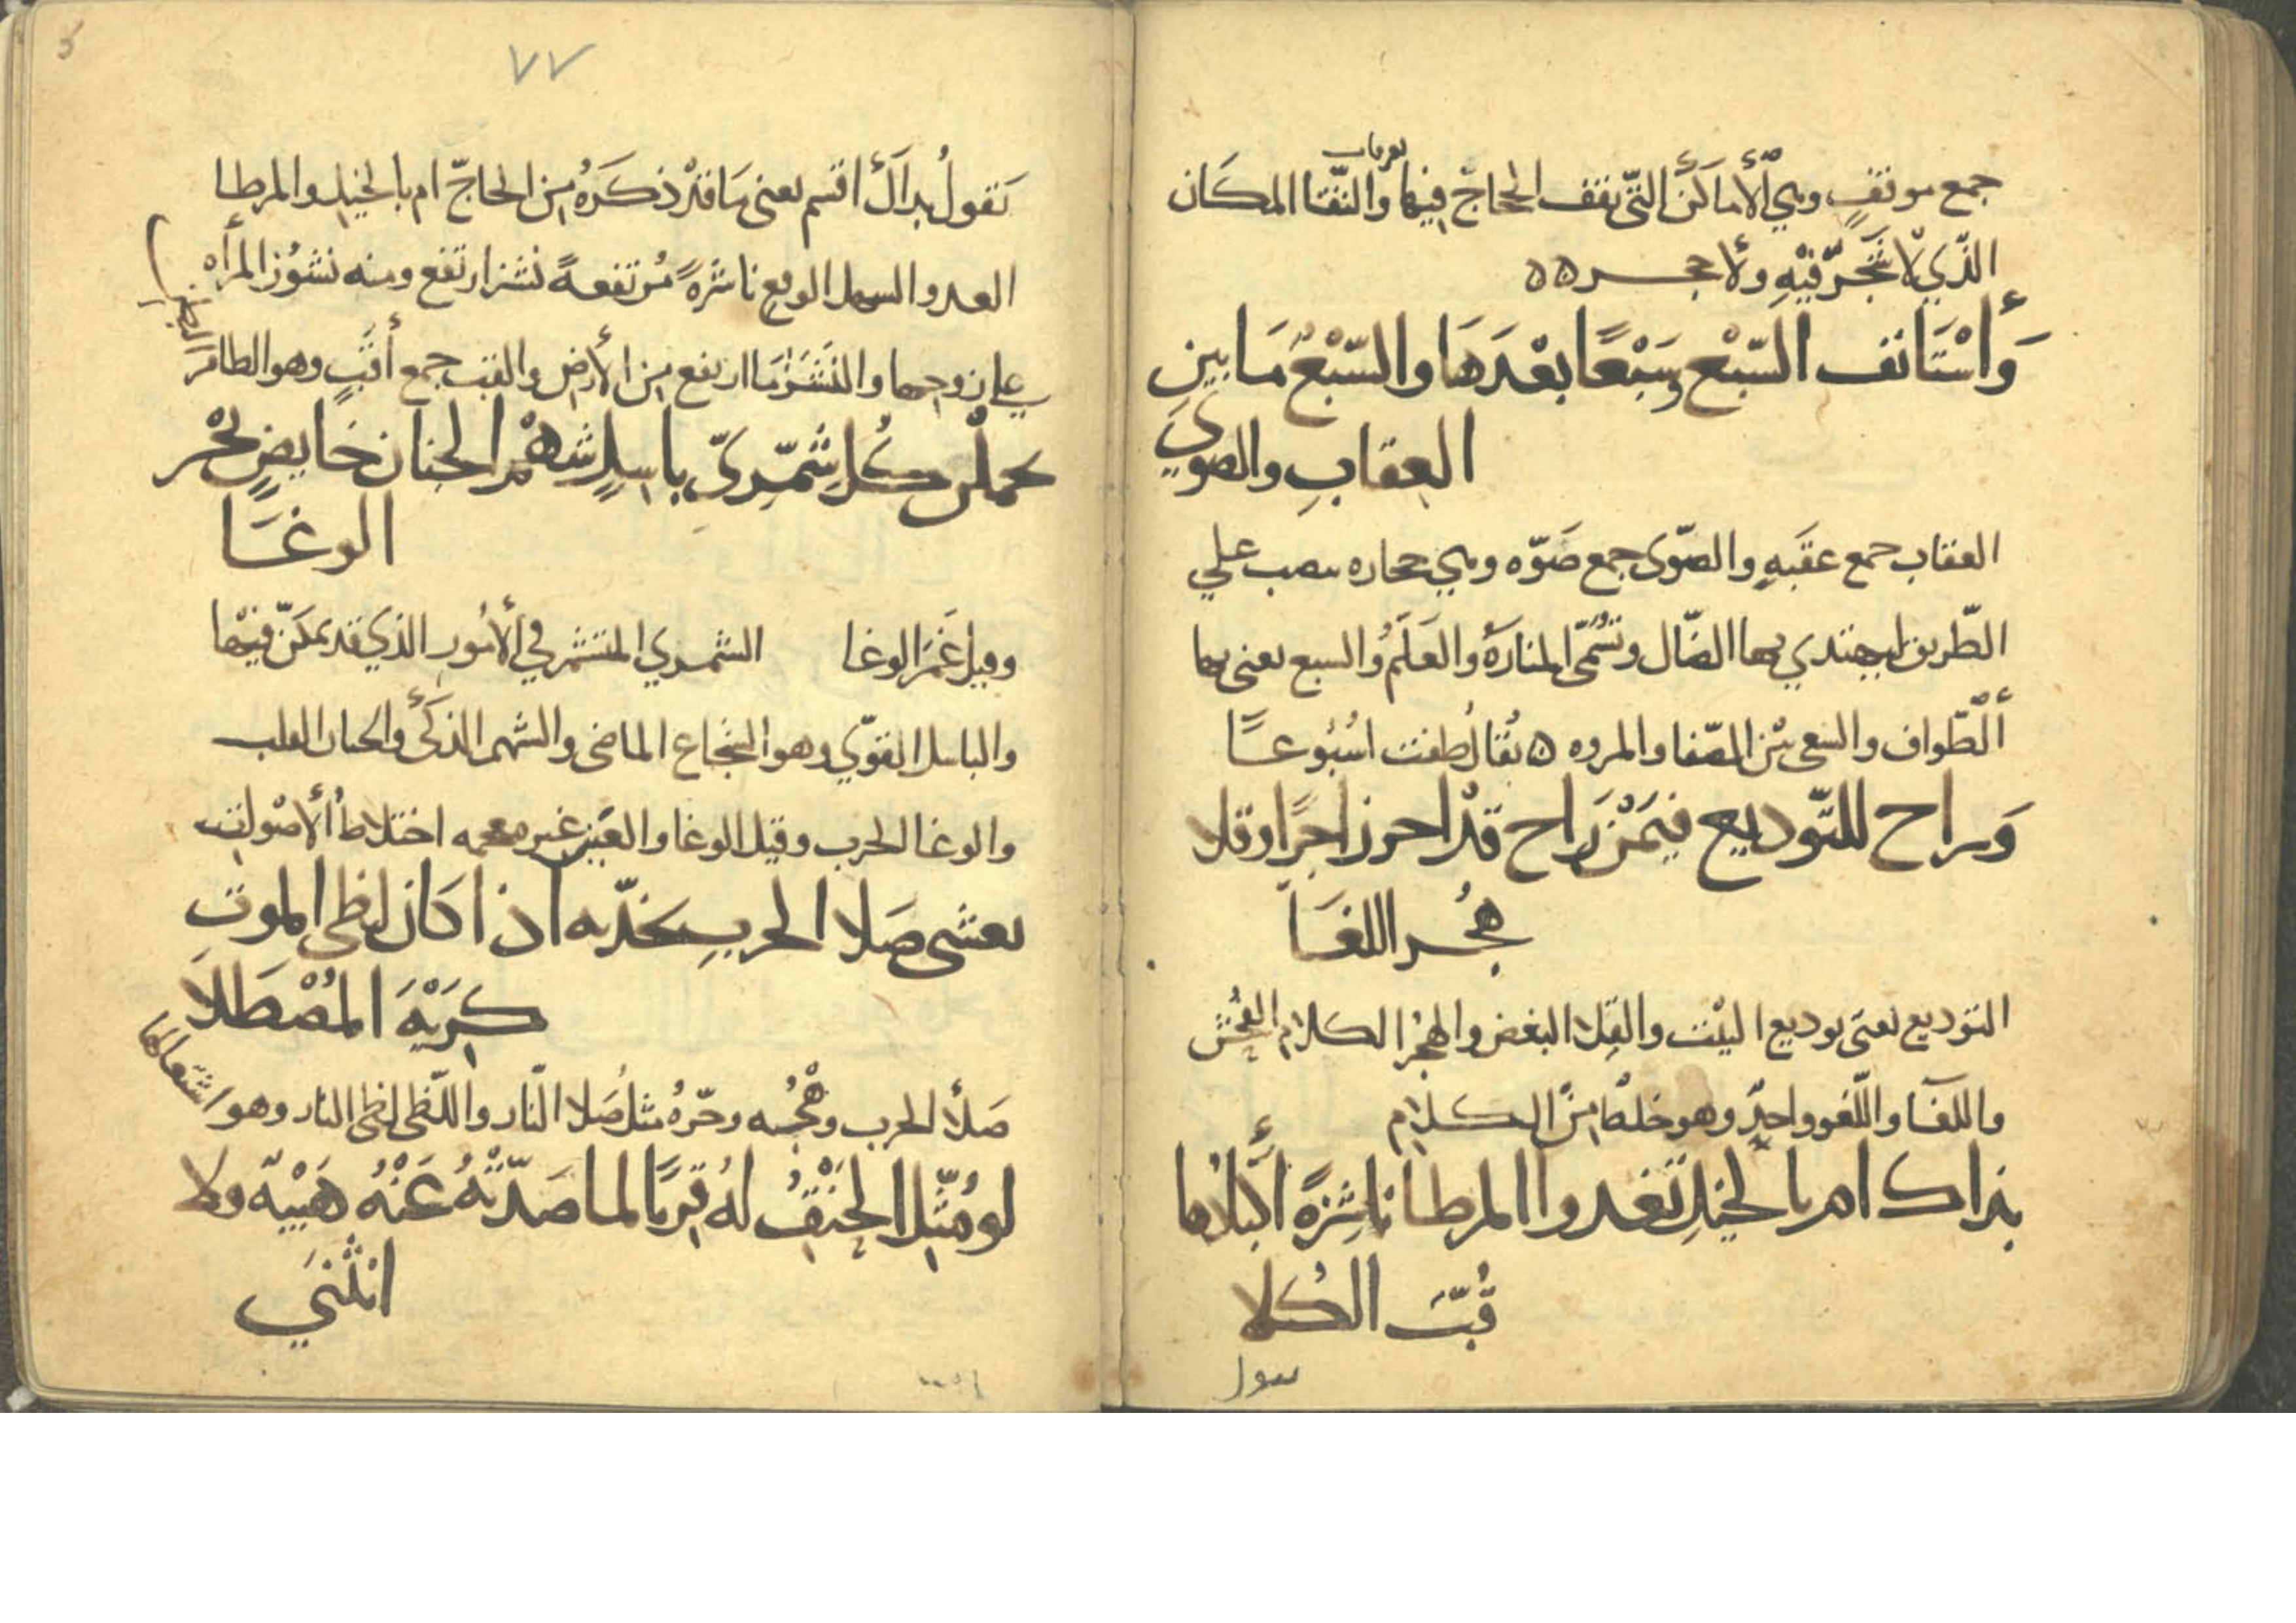 جمع موقفٍ وهي الأماكن التي يقف الحاج فيها والنقا المكان
بعرفات
الذي لا شجر فيه ولا حجر ٥٥
وَأسْتَانف السّبْع وسَبْعًا بعْدَهَا والسّبْعُ مَا بين
العِقابِ والصوي
العقاب جمع عقبه والصّوى جمع صَوّه وهي حجاره تنصب علي
الطّريق ليهتدي بها الضّال وتُسمّى المنارَة والعَلَمُ والسبع يعنى بها
ألطّواف والسّعى بيْن الصّفا والمروه ٥ يُقال طفت اسُبُوعًا
وَراح للتّوديع فيمَنْ رَاح قدْ احرز اجرًا وقلا
هُجْر اللغَا
التوديع يعنَى توديع البيْت والقِلا البغض والهُجْر الكلام الفُحْش
واللغَا واللّغو واحِدٌ وهو خلطٌ مِنَ الكلام
بذاك ام بالخيلِ تَغدوا المرطا ناشِزةً أكْبادُها
قُبّ الكُلا
تقول
٧٧
تَقولُ بذاك أقسم يعنى مَا قدْ ذكَرَهُ مِن الحاجّ ام بالخيل والمرطا
العدو السهل الوقع ناشزةً مُرتفعةً نشز ارتفع ومنه نشوُز المرأه
علي زوجها والنَشَز مَا ارتفع مِن الأرض والقب جمع أقبٍّ وهو الطامر
البطن
يحملْن كُلَ شمّريّ باسِلٍ شهْم الجنان خَايضٍ بحْر
الوغَا
وقيل غَمَر الوغا الشمري المتشمر في الأمُور الذي قد تمكنّ فيها
والباسل القوّي وهو الشجاع الماضى والشهم الذكَّي والجنان القلب
والوغا الحرب وقيل الوغا والعَيْن غير معجمه اختلاطُ ألأصْوات
يغشى صَلا الحربِ بخدّيه اذا كان لظى الموتِ
كَرِيْهَ المُصْطَلَا
صَلأ الحرب وهْجُه وحّرهُ مثل صُلا النّار واللّظى لظى النار وهو
اشتعالها
لو مُثِّلَ الحَتْفُ لهُ قِرْنًا لما صَدّتْهُ عَنْهُ هَيْبَة ولا
انْثنَي